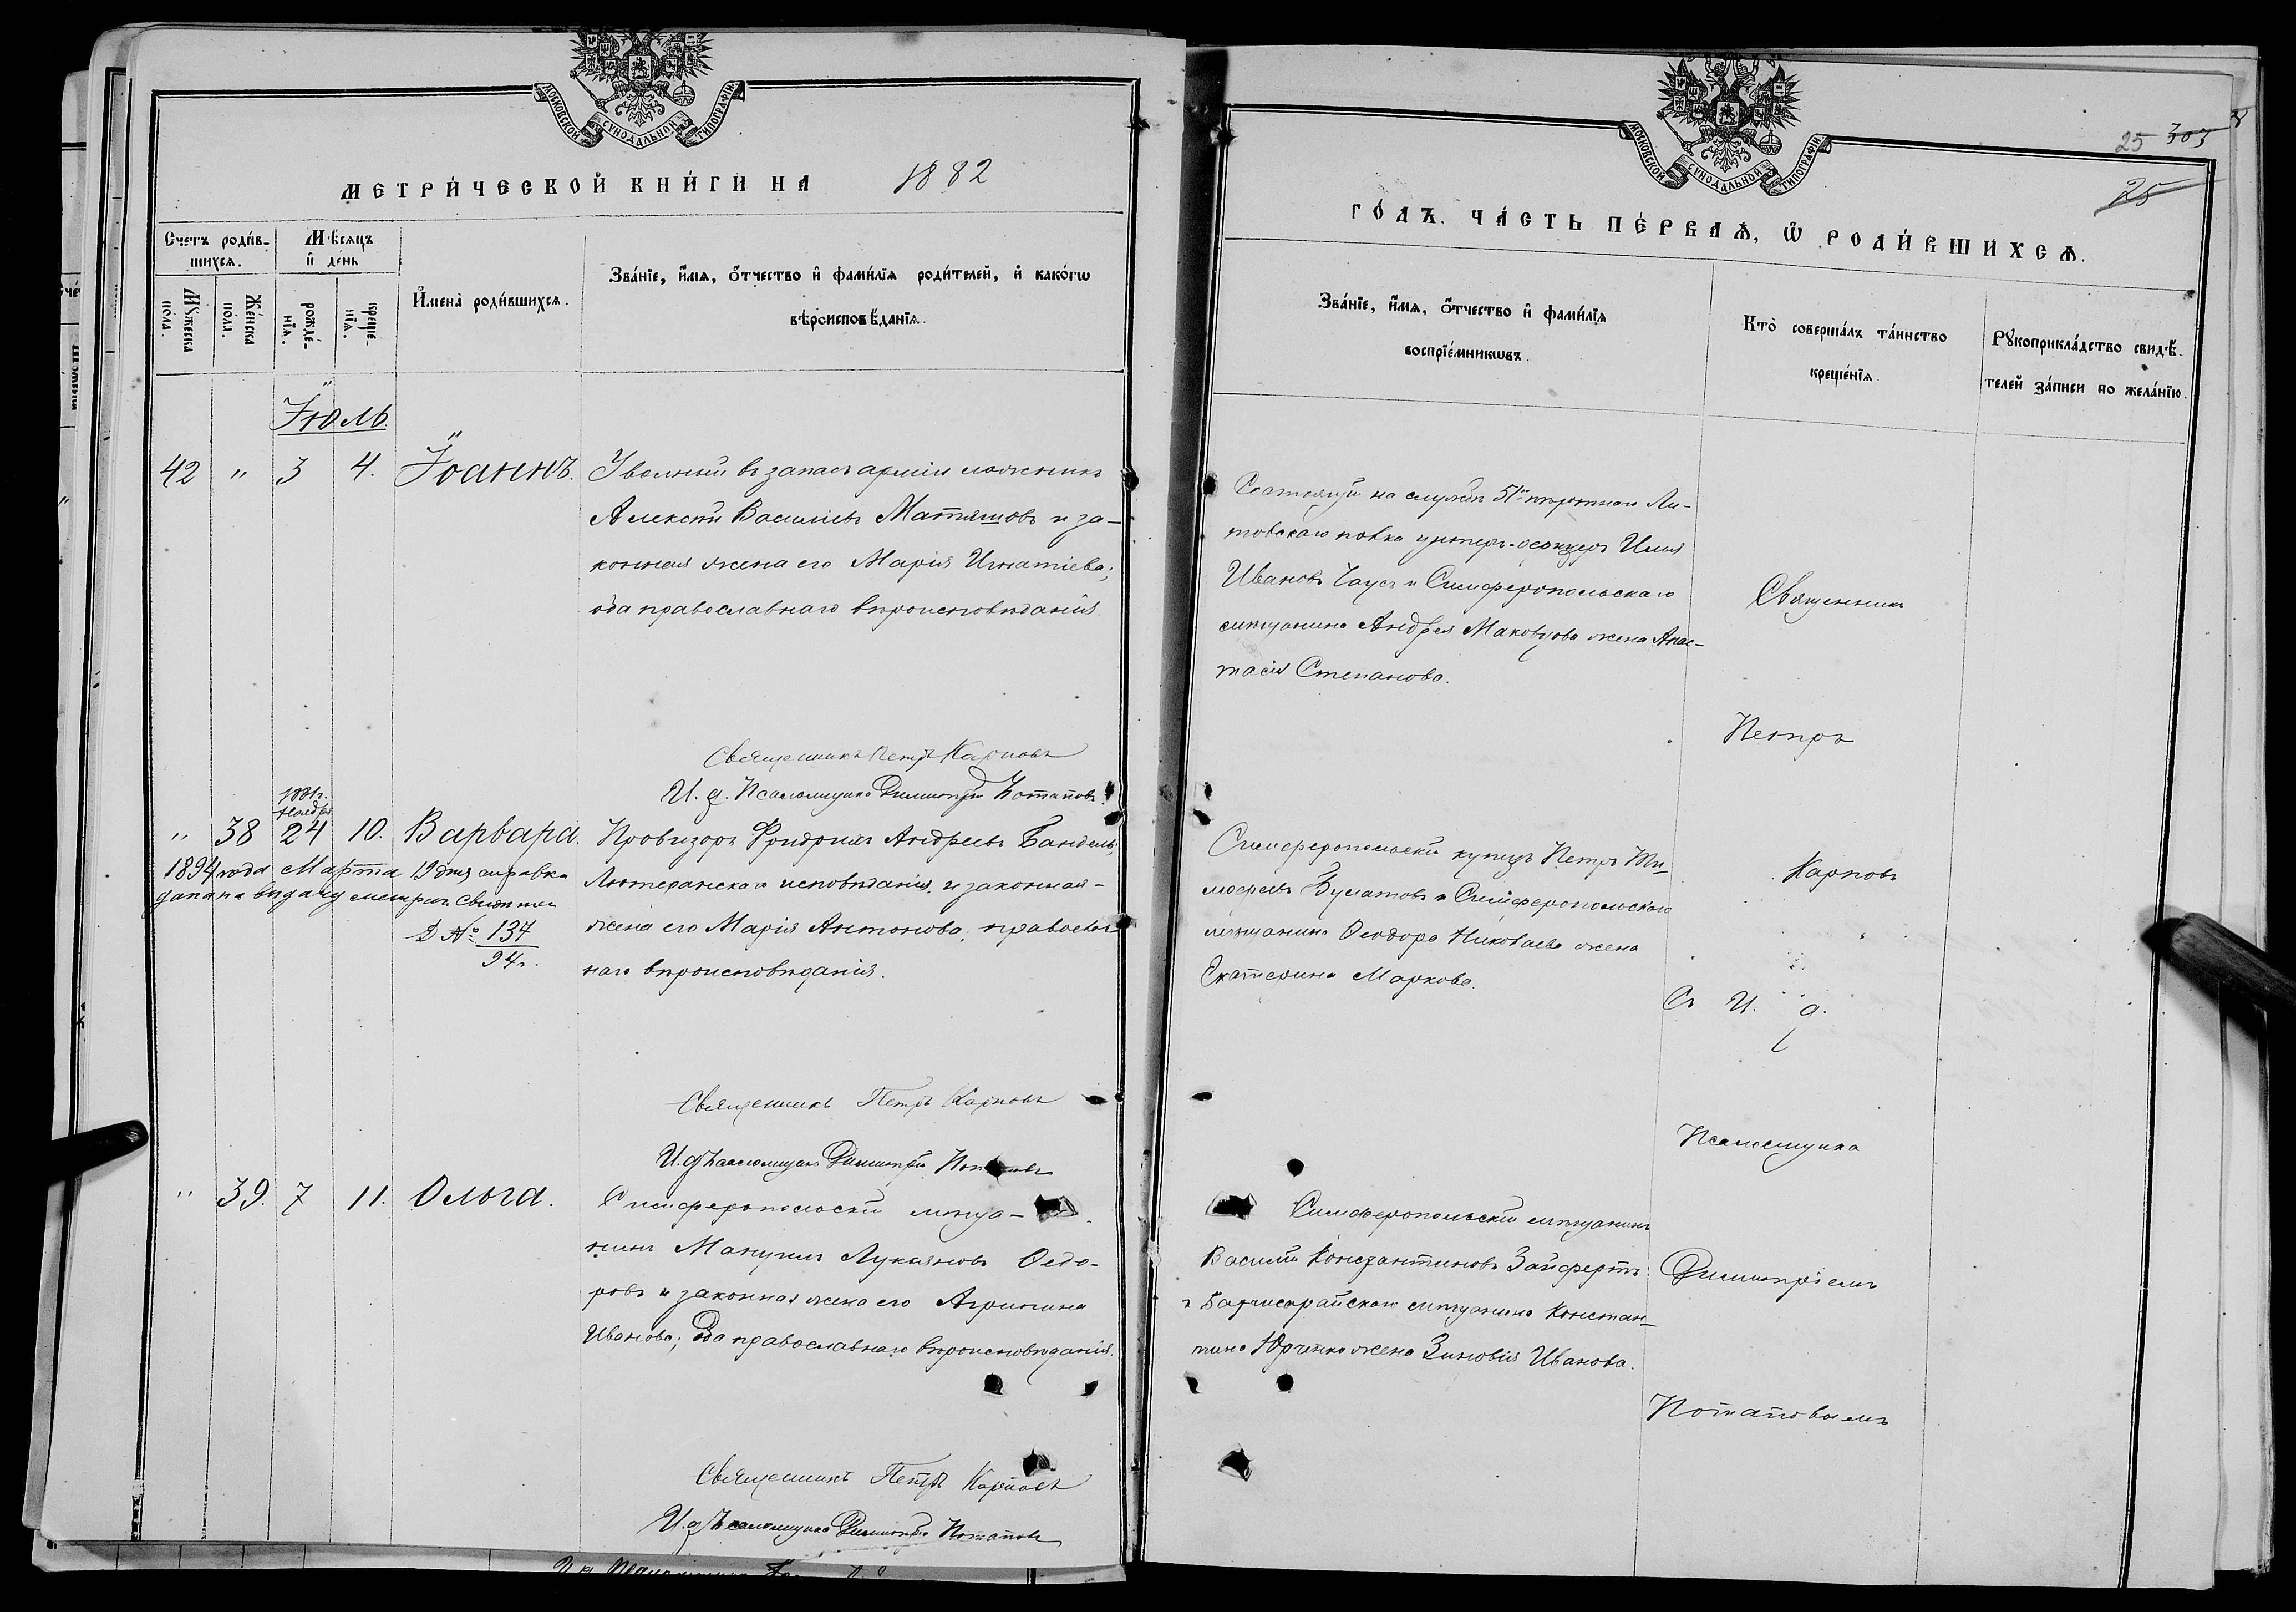 МОСКОВСКОЙ СѴНОДАЛЬНОЙ ТИПОГРАФІИ.
МЕТРИ́ЧЕСКОЙ КНИ́ГИ НА 1882
Счетъ роди́в-
шихсѧ.
Мѣ́сѧцъ
и҆ день
Мꙋ́жеска
по́ла.
Же́нска
по́ла.
рожде́-
нїѧ.
креще́-
нїѧ.
И҆мена̀ роди́вшихсѧ.
Зва́нїе, и҆́мѧ, ѻ҆́тчество и҆ фами́лїѧ роди́телей, и҆ како́гѡ
вѣроисповѣ́данїѧ.
Іюль
42 " 3 4. Іоаннъ.
Уволный въ запасъ арміи
Алексѣй Васильевъ Матяшовъ и за-
конная жена его Марія Игнатіева;
оба православнаго вѣроисповѣданія.
Священникъ Петръ Карповъ
И. д. Псаломщика Димитрій Потаповъ.
1881г.
Ноября
" 38 24 10. Варвара.
Провизоръ Фридрихъ Андреевъ Бандель,
Лютеранскаго исповѣданія, и законная-
жена его Марія Антонова, православ-
наго вѣроисповѣданія.
1894 года Марта 19 дня справка
дана на выдачу метрич. свидѣтел
№ 137
94г.
Священникъ Петръ Карповъ
И. д. Псаломщика Димитрій Потаповъ
" 39. 7 11. Ольга.
Симферопольскій мѣща-
нинъ Мануилъ Лукьяновъ Ѳедо-
ровъ и законная жена его Агрипина
Иванова; оба православнаго вѣроисповѣданія.
Священникъ Петръ Карповъ
И. д. Псаломщика Димитрій Потаповъ
МОСКОВСКОЙ СѴНОДАЛЬНОЙ ТИПОГРАФІИ.
25 303
25
ГО́ДЪ. ЧА́СТЬ ПЕ́РВАѦ, Ѽ РОДИ́ВШИХСѦ.
Зва́нїе, и҆́мѧ, ѻ҆́тчество и҆ фами́лїѧ
воспрїе́мникѡвъ.
Кто̀ соверша́лъ та́инство
креще́нїѧ.
Рꙋкоприкла́дство свидѣ́-
телей за́писи по жела́нїю.
Состоящій на службѣ 51го пѣхотнаго Ли-
товскаго полка унтеръ-офицеръ Илья
Ивановъ Чаусъ и Симферопольскаго
мѣщанина Андрея Маковзова жена Анас-
тасія Степанова.
Симферопольскій купецъ Петръ Ти-
моѳеевъ Булатовъ и Симферопольскаго
мѣщанина Ѳеодора Николаева жена
Екатерина Маркова.
Симферопольскій мѣщанинъ
Василій Константиновъ Зайфертъ
и Бахчисарайскаго мѣщанина Констан-
тина Юрченко жена Зиновія Иванова.
Священникъ
Петръ
Карповъ
Съ И. д.
Псаломщика
Димитріемъ
Потаповымъ